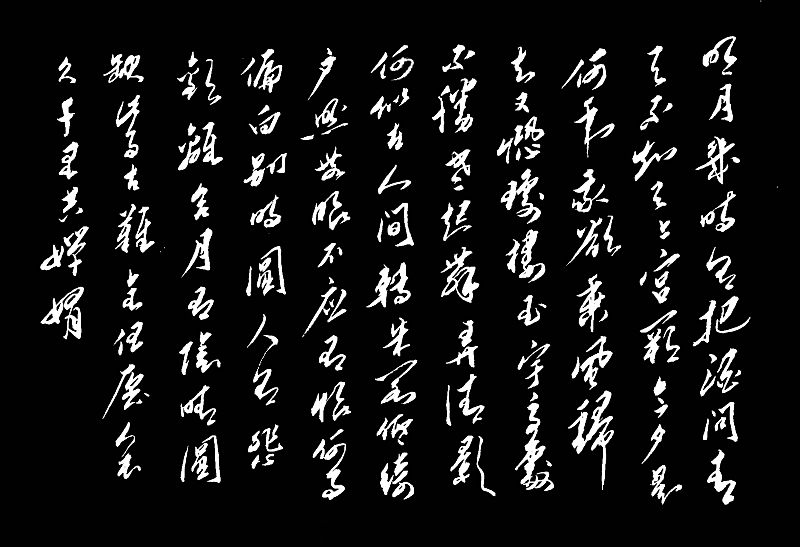 明月幾時有把酒問青
天不知天上宮闕今夕是
何年我欲乘風歸
去又恐瓊樓玉宇高處
不勝寒起舞弄清影
何似在人間轉朱閣低綺
戶照無眠不應有恨何事
偏向別時圓人有悲
歡離合月有陰晴圓
缺此事古難全但願人長
久千里共嬋娟